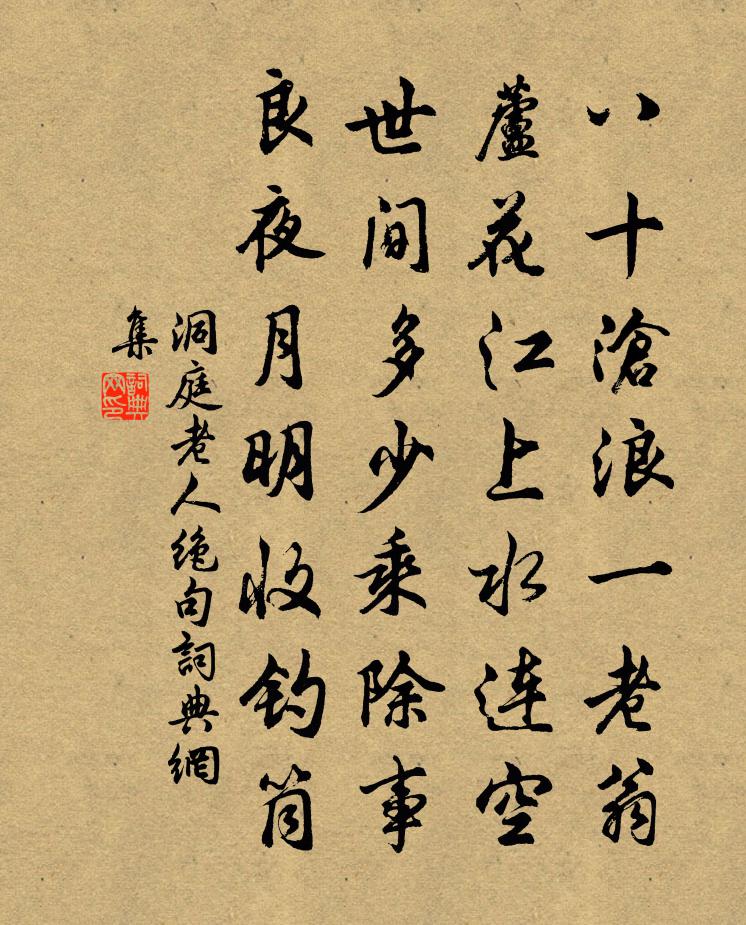 八十滄浪一老翁
蘆花江上水连空
世间多少乘除事
良夜月明收钓筒
洞庭老人绝句詞典網
集
詞典網印